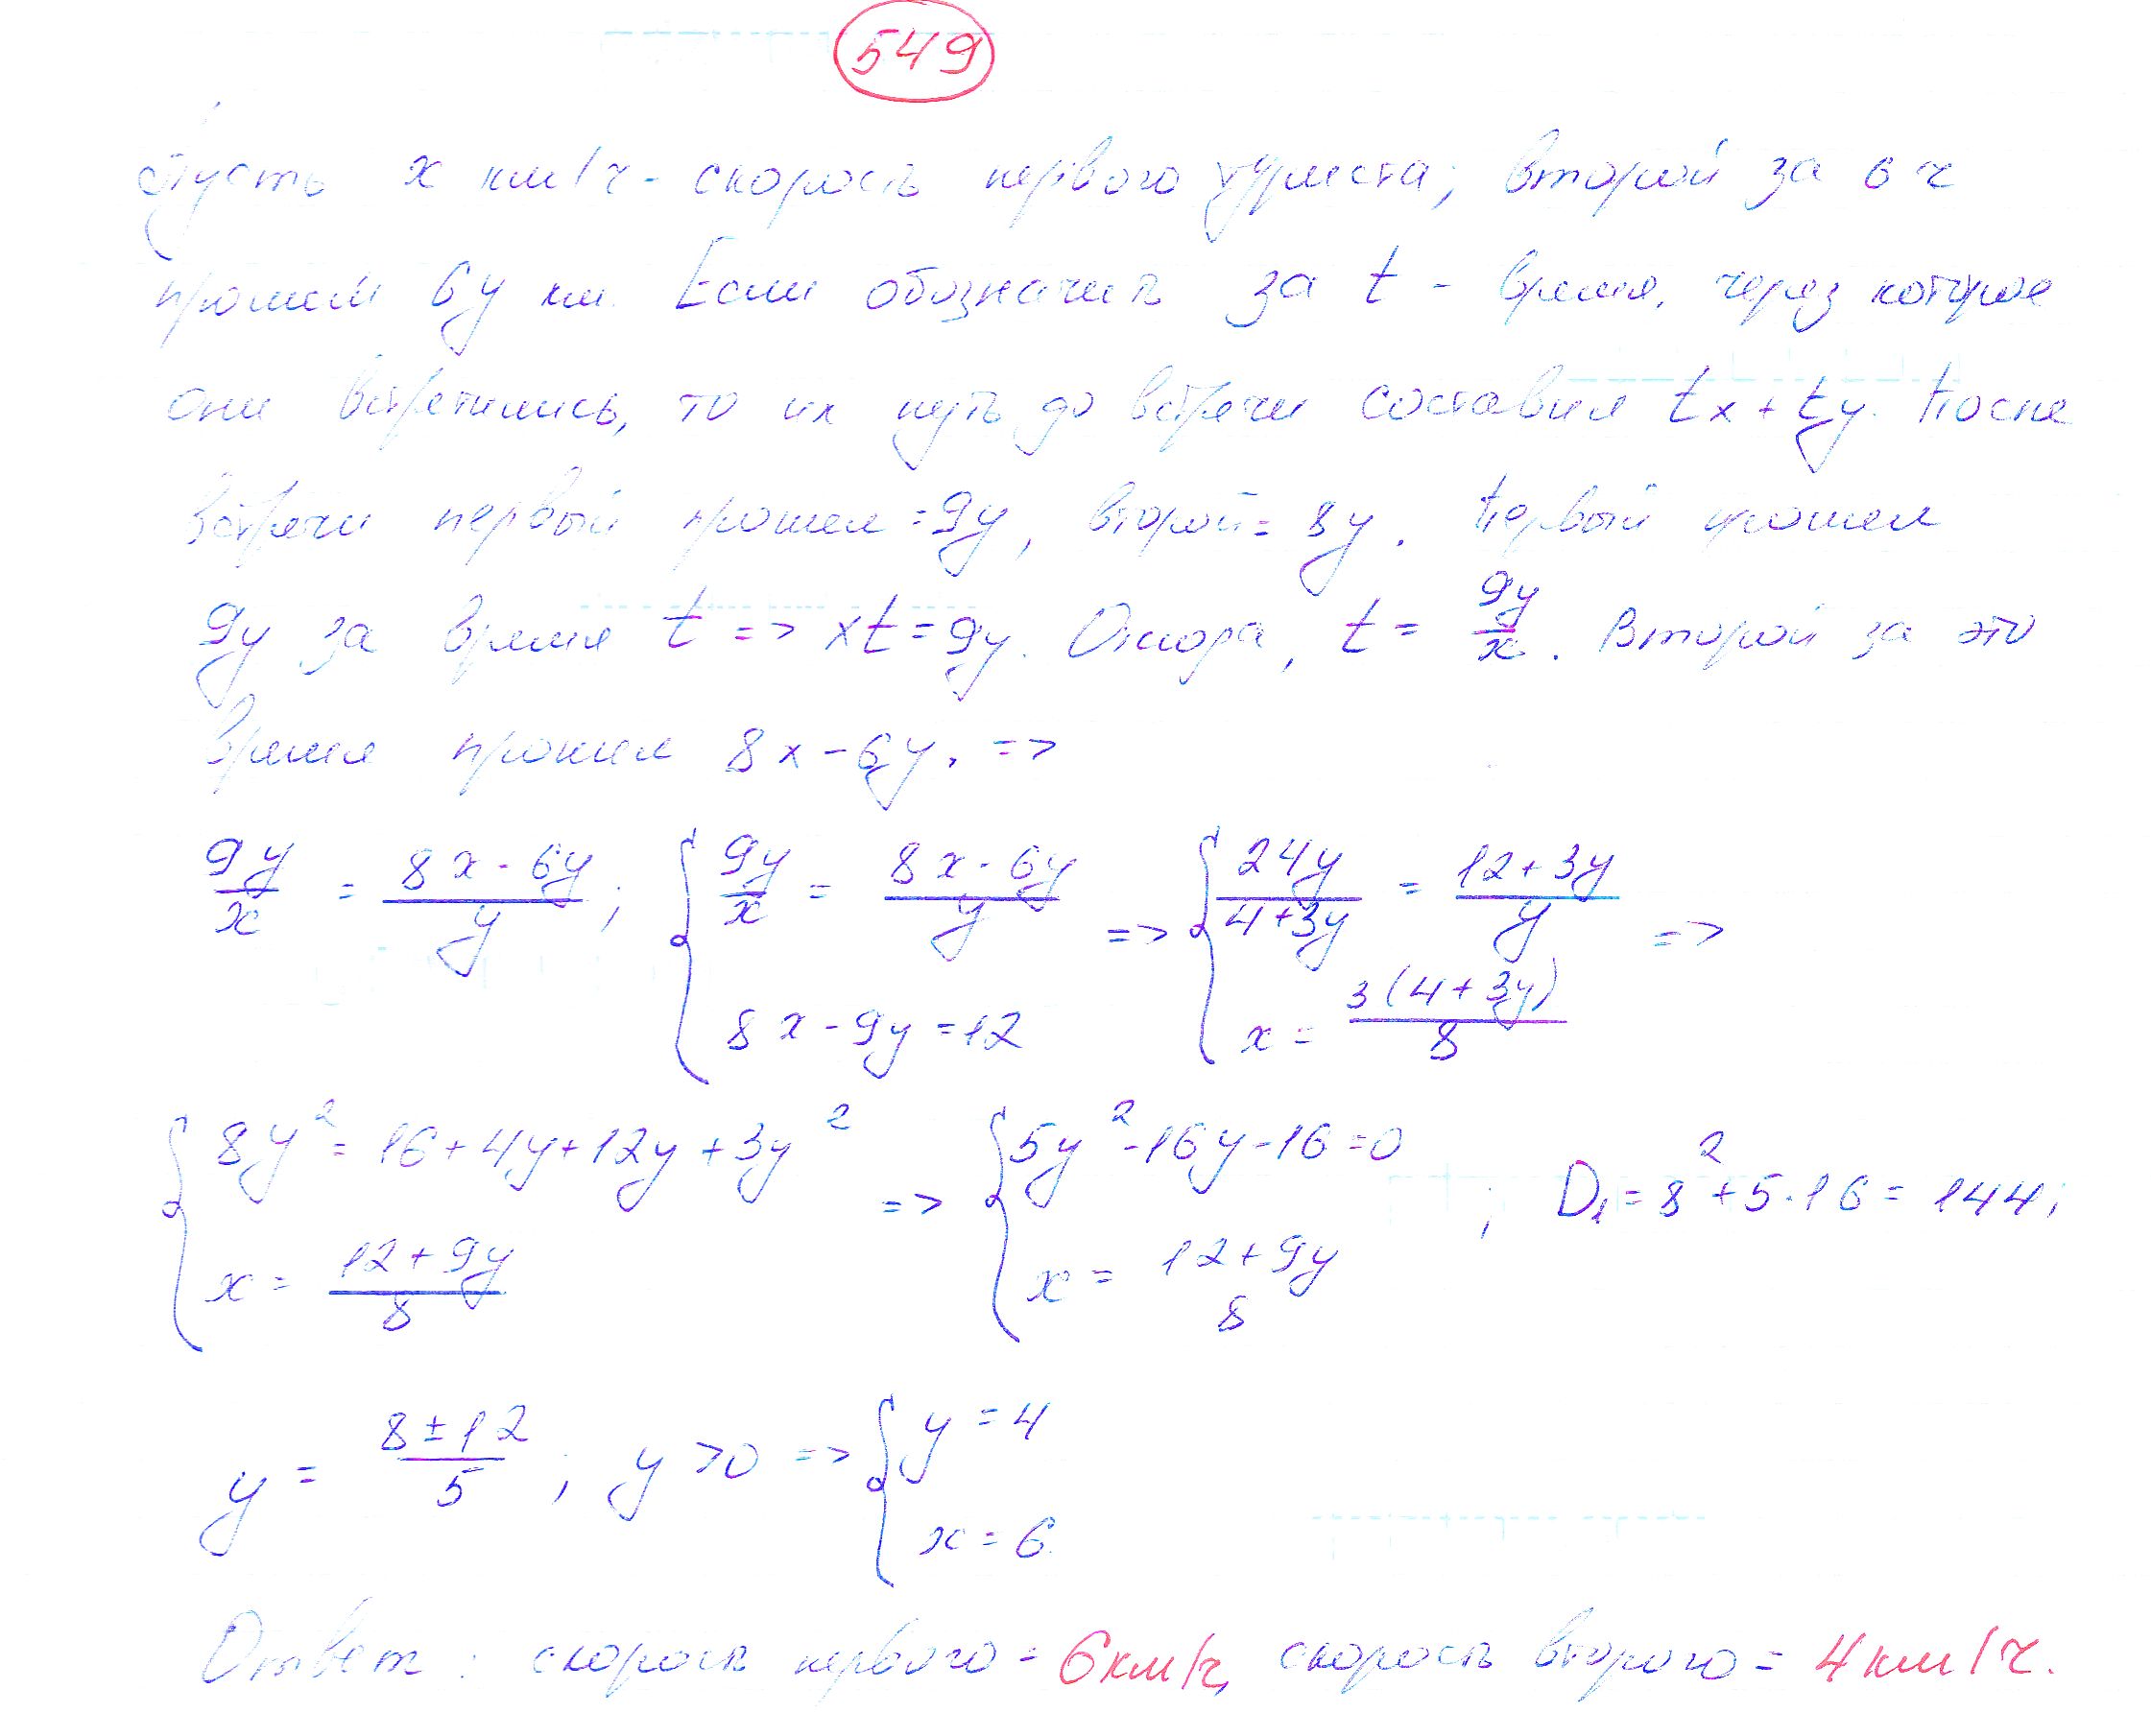 549
Пусть x км/ч - скорость первого туриста; второй за 6 ч
прошел 6y км. Если обозначить за t - время, через которое
они встретились, то их путь до встречи составил tx + ty. После
встречи первый прошел = 9y, второй = 8y. Первый прошел
9y за время t => xt = 9y. Отсюда, t = 9y/x. Второй за это
время прошел 8x - 6y. =>
9y/x = (8x - 6y)/y ; { 9y/x = (8x - 6y)/y ; 8x - 9y = 12 => { 24y/(4+3y) = (12+3y)/y ; x = 3(4+3y)/8 =>
{ 8y² = 16 + 4y + 12y + 3y² ; x = (12+9y)/8 => { 5y² - 16y - 16 = 0 ; x = 12+9y 8 ; D₁ = 8² + 5·16 = 144;
y = (8 ± 12)/5 ; y > 0 => { y = 4 ; x = 6.
Ответ: скорость первого = 6 км/ч, скорость второго = 4 км/ч.